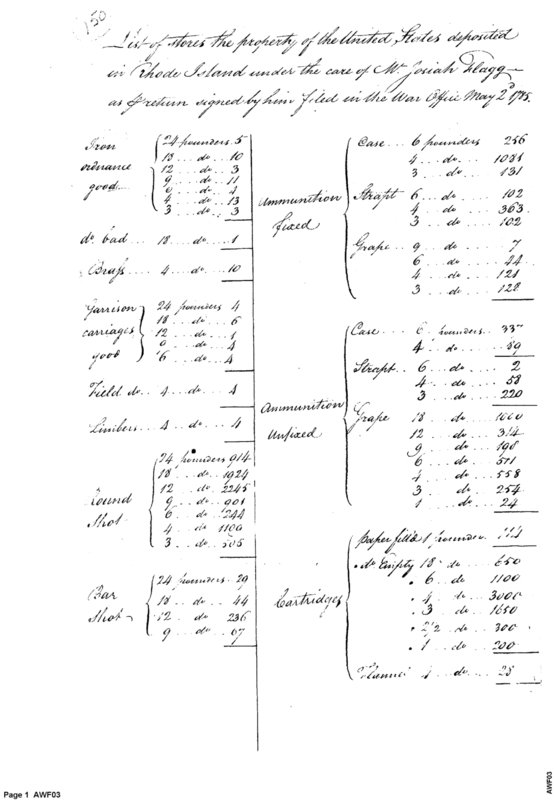 150
List of stores the property of the United States deposited
in Rhode Island under the care of Mr. Josiah Flagg
as p return signed by him filed in the War Office May 2d 1785.
Iron ordnance good
24 pounders 5
18 .. do .. 10
12 ... do .. 3
9 ... do .. 11
do .. 4
4 ... do .. 13
3 .. do .. 3
do. bad .. 18 .. do ... 1
Brass .. 4 .. do .... 10
Garrison carriages good
24 pounders 4
18 .. do .. 6
12 ... do ... 1
do .. 4
6 .. do .. 4
Field do .. 4 .. do .... 4
Limbers .. 4 .. do .... 4
Round Shot
24 pounders 914
18 .. do .. 1924
12 .. do 2245
9 ... do .. 901
6 .. do .. 244
4 .. do 1109
3 .. do ..
Bar Shot
24 pounders .. 29
18 .. do .. 44
12 ... do .. 236
9 .. do .. 67
Ammunition fixed
Case ... 6 pounders 256
4 .. do ....
3 ... do .... 131
Strapt 6 .. do .... 102
4 ... do .... 363
3 ... do .... 102
Grape .. 9 ... do ..... 7
6 ... do .... 44
4 ... do ... 121
3 ... do ... 128
Ammunition Unfixed
Case .... 6 pounders ..
4 .. do .... 59
Strapt .. 6 ... do .... 2
4 ... do ... 58
3 ... do ... 220
Grape 18 .. do ....
12 ... do .. 314
9 .. do .. 198
6 ... do ... 511
4 ... do ... 558
3 ... do .. 254
1 ... do ... 24
Cartridges
Paper filled 1 pounder ..
do Empty 18 .. do .... 650
6 .. do .. 1100
4 .. do .. 3000
3 .. do .. 1650
2 1/2 .. do ... 300
1 .. do .... 200
4 ... do .... 25
Page 1 AWF03
AWF03